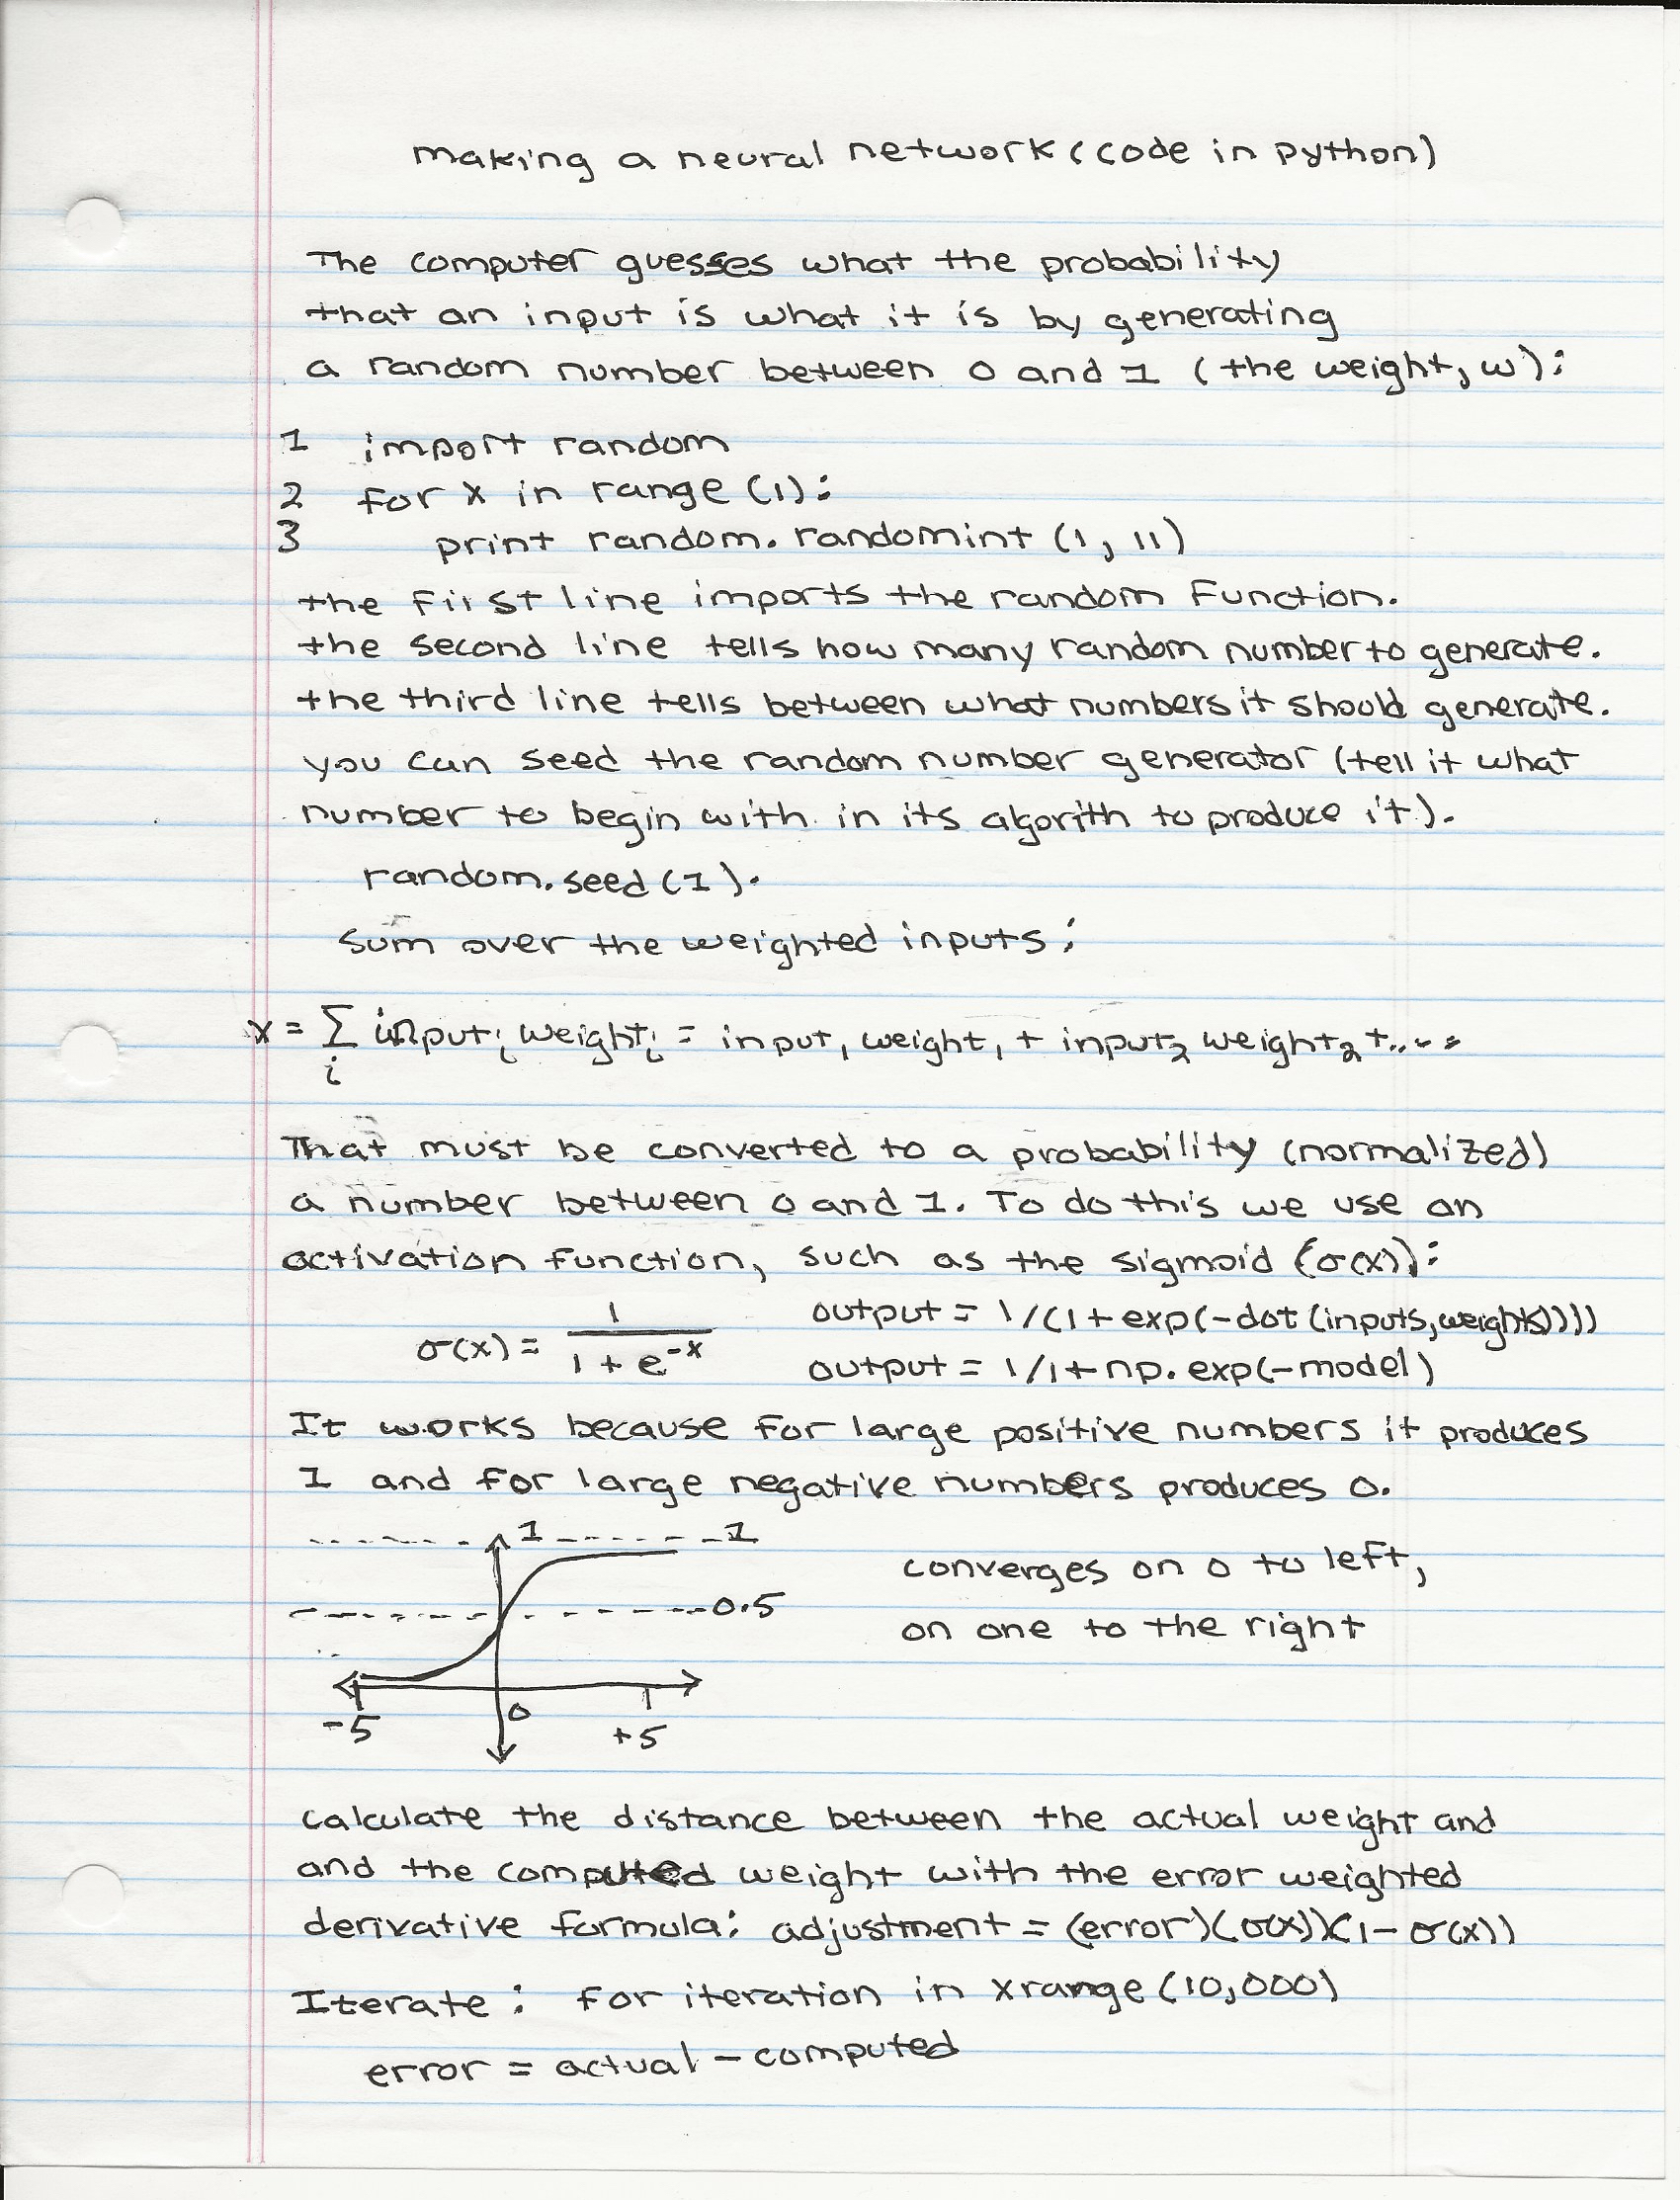 making a neural network (code in python)
The computer guesses what the probability
that an input is what it is by generating
a random number between 0 and 1 (the weight, w):
1 import random
2 for x in range (1):
3 print random. randomint (1, 11)
the first line imports the random function.
the second line tells how many random number to generate.
the third line tells between what numbers it should generate.
you can seed the random number generator (tell it what
number to begin with in its algorith to produce it).
random.seed(1).
sum over the weighted inputs:
x = Σ inputᵢ weightᵢ = input₁ weight₁ + input₂ weight₂ + ....
i
That must be converted to a probability (normalized)
a number between 0 and 1. To do this we use an
activation function, such as the sigmoid (σ(x)):
σ(x) = 1 / 1 + e^-x
output = 1/(1+exp(-dot(inputs,weights))))
output = 1/1+np.exp(-model)
It works because for large positive numbers it produces
1 and for large negative numbers produces 0.
1 1
0.5
-5 0 +5
converges on 0 to left,
on one to the right
calculate the distance between the actual weight and
and the computed weight with the error weighted
derivative formula: adjustment = (error)(σ(x))(1-σ(x))
Iterate: for iteration in xrange(10,000)
error = actual - computed